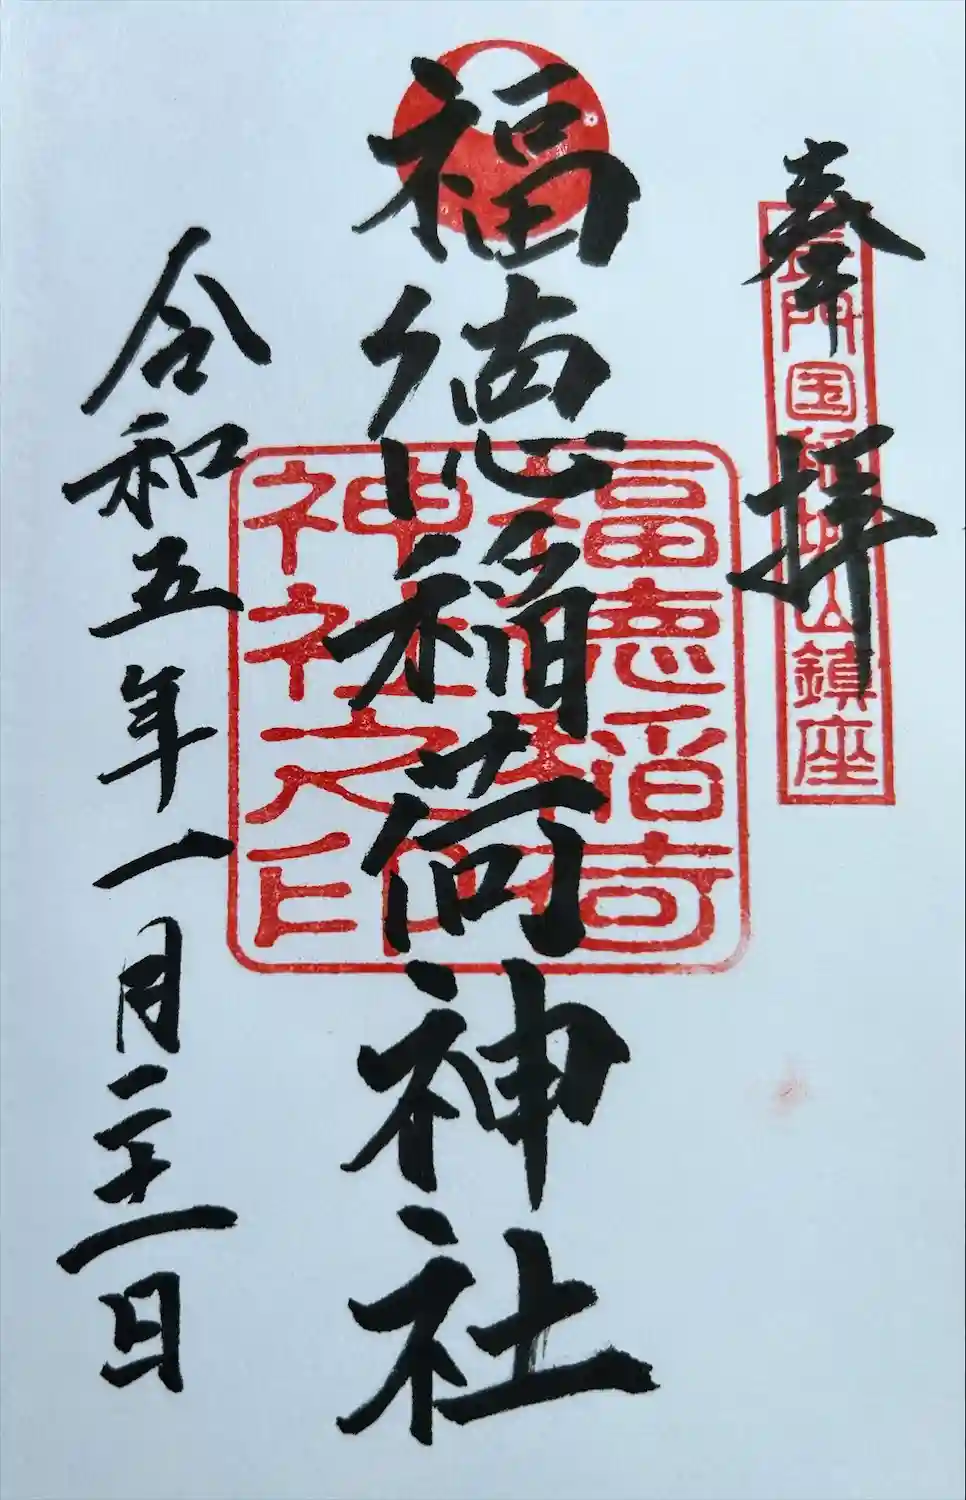 奉拝
長門国 山鎮座
福徳稲荷神社
福徳稲荷
神社之印
令和五年一月二十一日